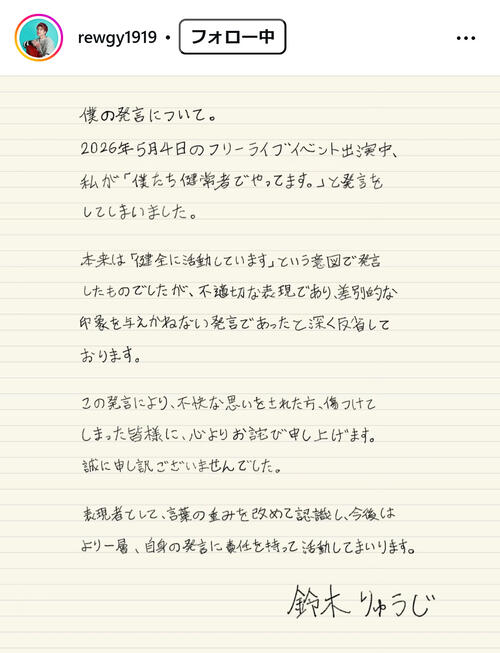 rewgy1919 • フォロー中
僕の発言について。
2026年5月4日のフリーライブイベント出演中、
私が「僕たち健常者でやってます。」と発言を
してしまいました。
本来は「健全に活動しています」という意図で発言
したものでしたが、不適切な表現であり、差別的な
印象を与えかねない発言であったと深く反省して
おります。
この発言により、不快な思いをされた方、傷つけて
しまった皆様に、心よりお詫び申し上げます。
誠に申し訳ございませんでした。
表現者として、言葉の重みを改めて認識し、今後は
より一層、自身の発言に責任を持って活動してまいります。
鈴木りゅうじ